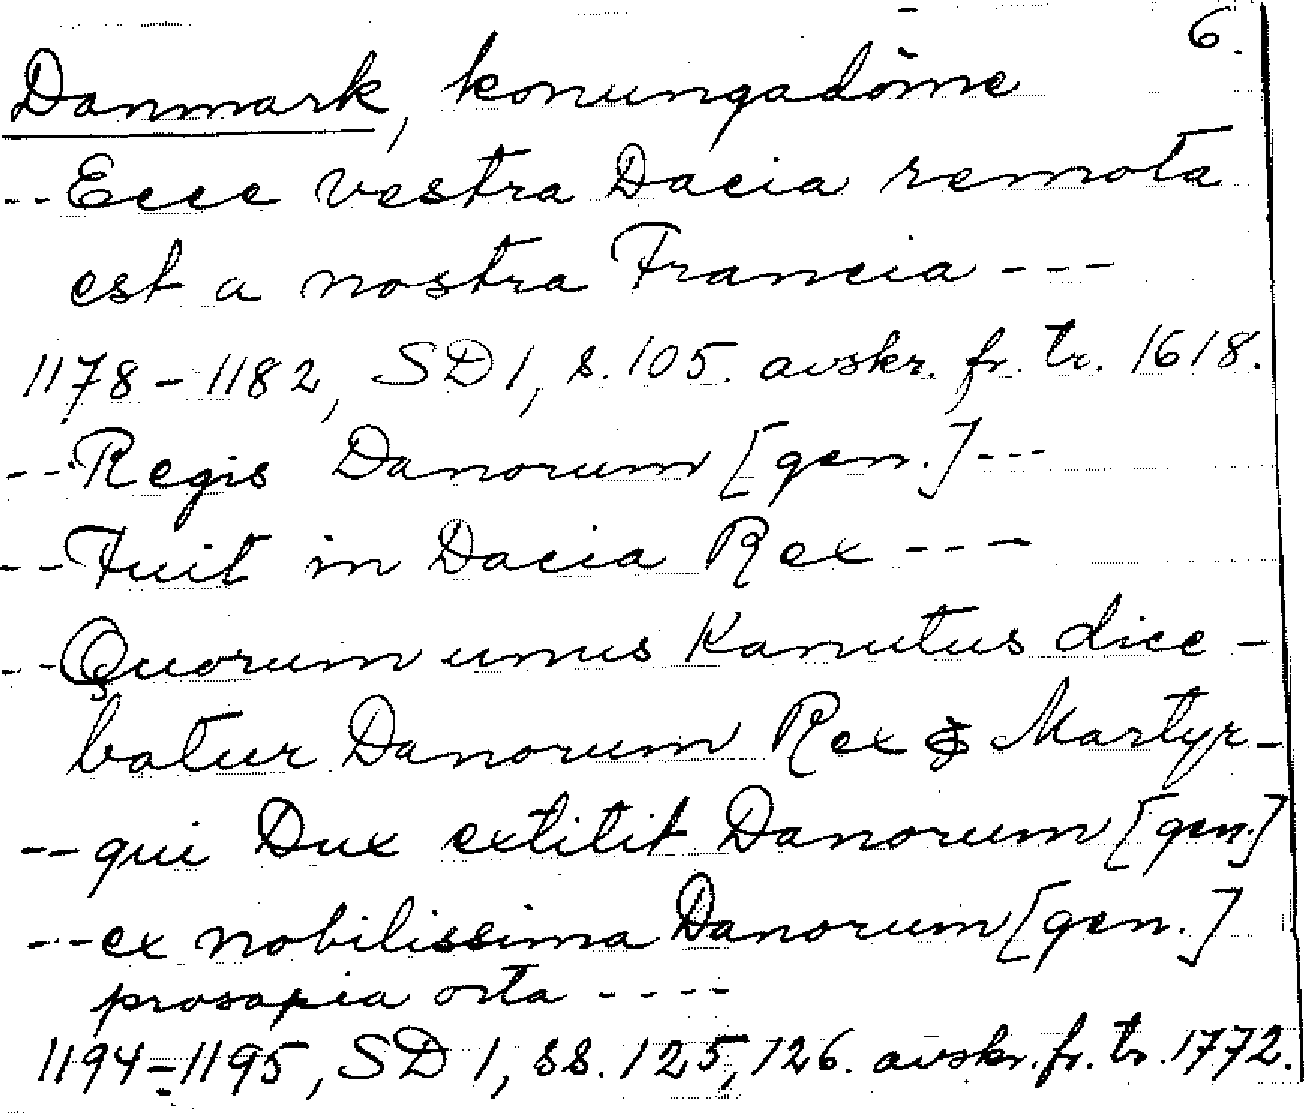 6.
Danmark, konungadöme
-- Ecce vestra Dacia remota
est a nostra Francia ---
1178-1182, SD 1, s. 105. avskr. fr. tr. 1618.
--- Regis Danorum [gen.] ---
-- Fuit in Dacia Rex ---
-- Quorum unus Kanutus dice-
batur Danorum Rex & Martyr -
-- qui Dux extitit Danorum [gen.]
--- ex nobilissima Danorum [gen.]
prosapia orta ----
1194-1195, SD 1, ss. 125, 126. avskr. fr. tr. 1772.